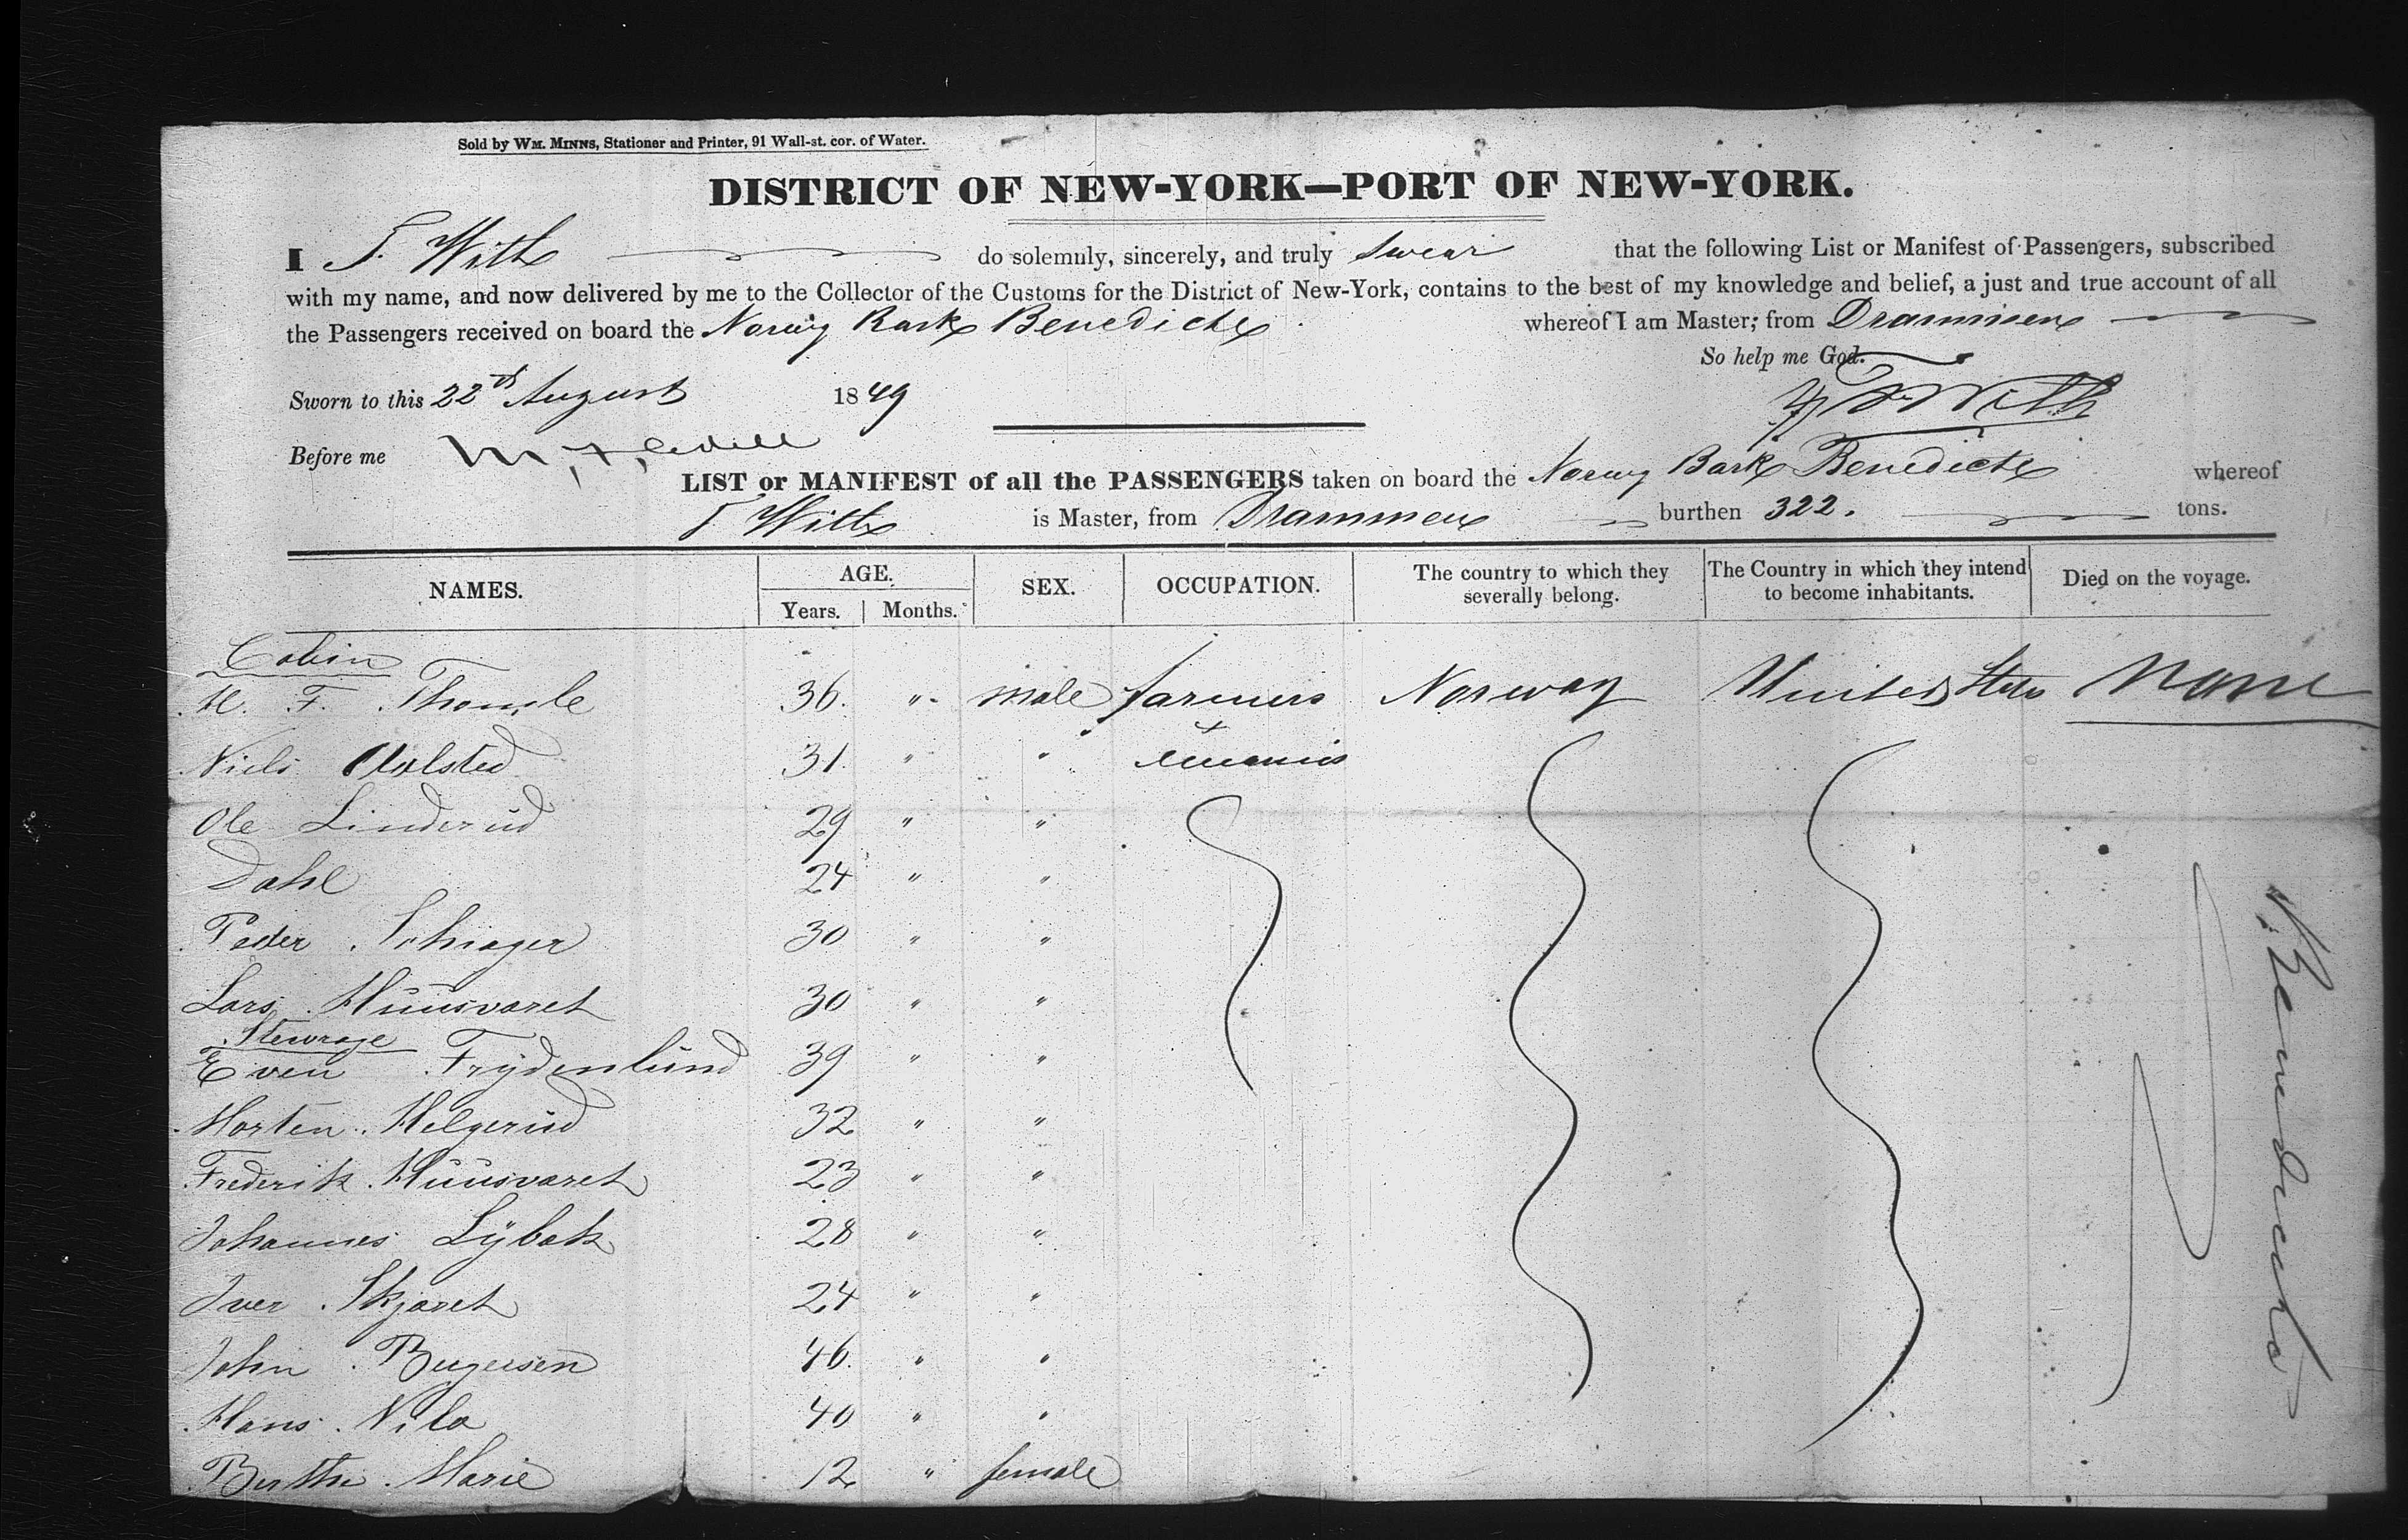 Sold by WM. MINNS, Stationer and Printer, 91 Wall-st. cor. of Water.
DISTRICT OF NEW-YORK—PORT OF NEW-YORK.
I With do solemnly, sincerely, and truly swear that the following List or Manifest of Passengers, subscribed
with my name, and now delivered by me to the Collector of the Customs for the District of New-York, contains to the best of my knowledge and belief, a just and true account of all
the Passengers received on board the Norwg Bark Benedicte whereof I am Master; from Drammen
So help me God.
Sworn to this 22th August 1849
With
Before me
LIST or MANIFEST of all the PASSENGERS taken on board the Norwg Bark Benedicte whereof
With is Master, from Drammen burthen 322. tons.
NAMES. AGE. SEX. OCCUPATION. The country to which they severally belong. The Country in which they intend to become inhabitants. Died on the voyage.
Years. Months.
Cabin
F. 36. " male farmers Norway United States None
Niels 31. " " +
Ole Linderud 29 " "
Dahl 24 " "
Peder 30 " "
Lars Huusvaret 30 " "
Stewrage
Even Frydenlund 39 " "
Morten Helgerud 32 " "
Frederik Huusvaret 23 " "
Johannes Lÿbek 28 " "
Iver Skjaret 24 " "
John 46. " "
Hans 40 " "
Marie 12 " female
Benedicte